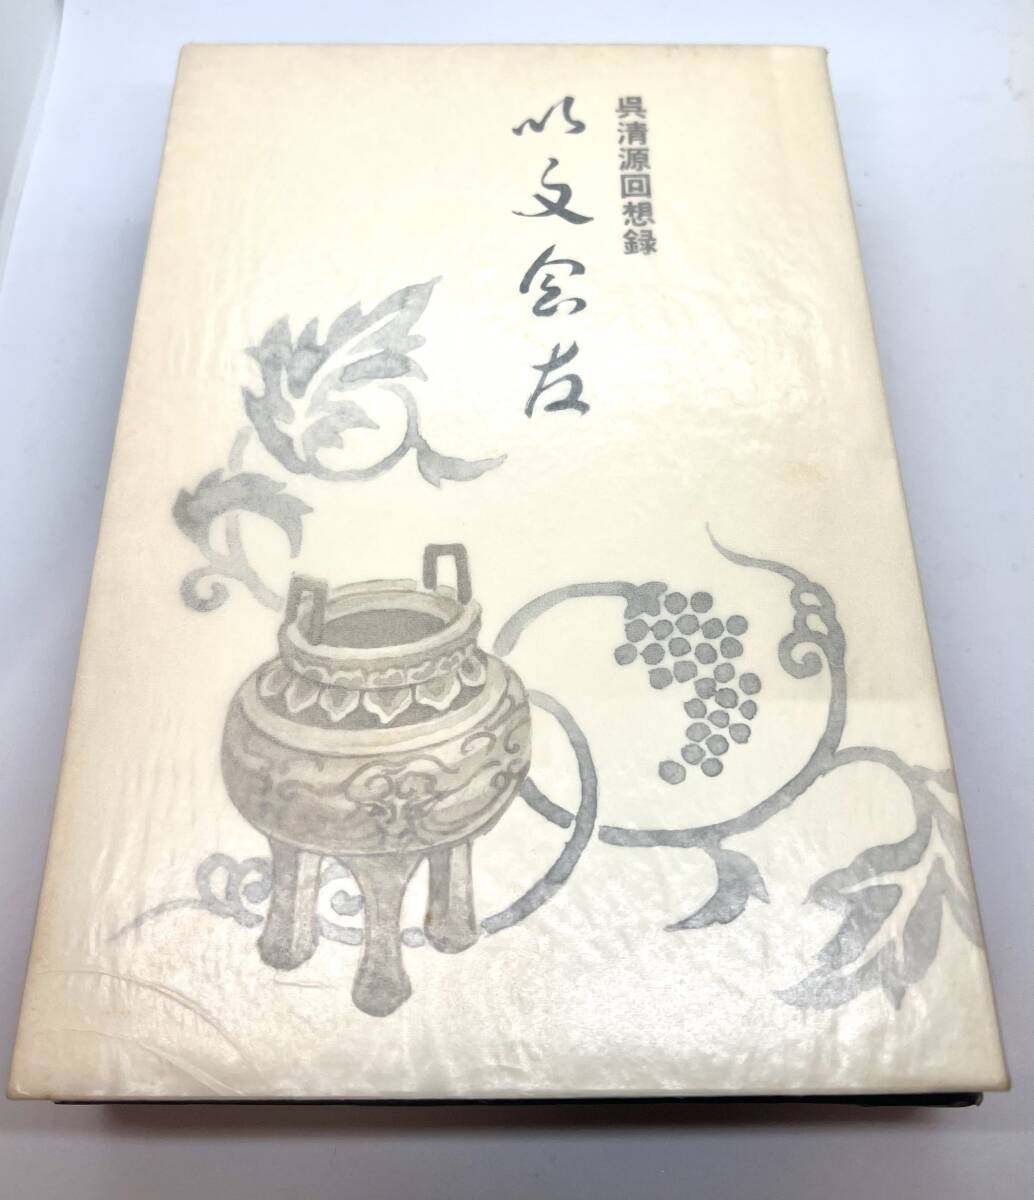 呉清源回想録
以文会友